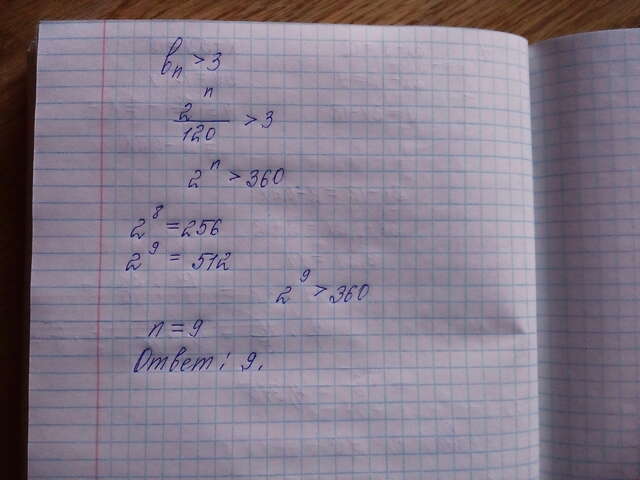 bₙ > 3
2ⁿ/120 > 3
2ⁿ > 360
2⁸ = 256
2⁹ = 512
2⁹ > 360
n = 9
Ответ: 9.